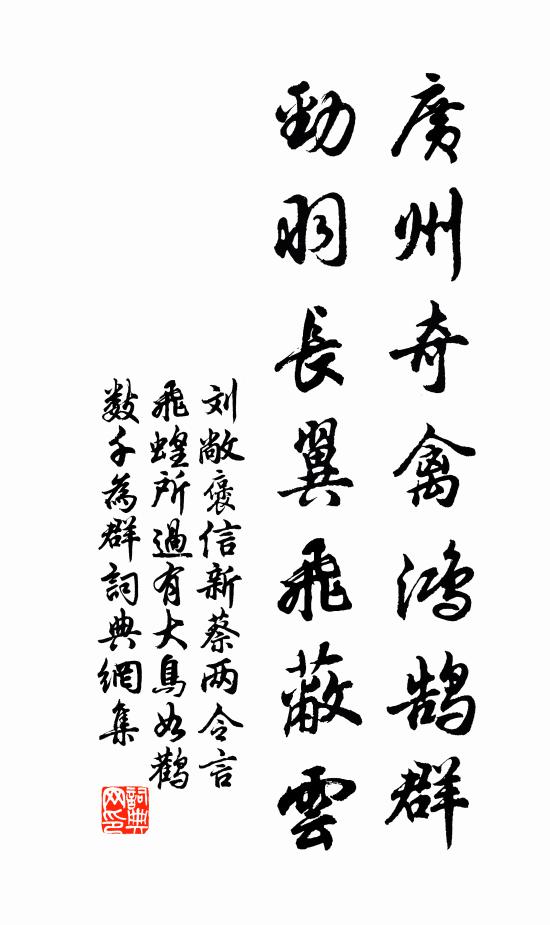 廣州奇禽鴻鹄群
勁羽長翼飛蔽雲
刘敞褒信新蔡两令言
飛蝗所過有大鳥如鸛
數千為群詞典網集
詞典
网印